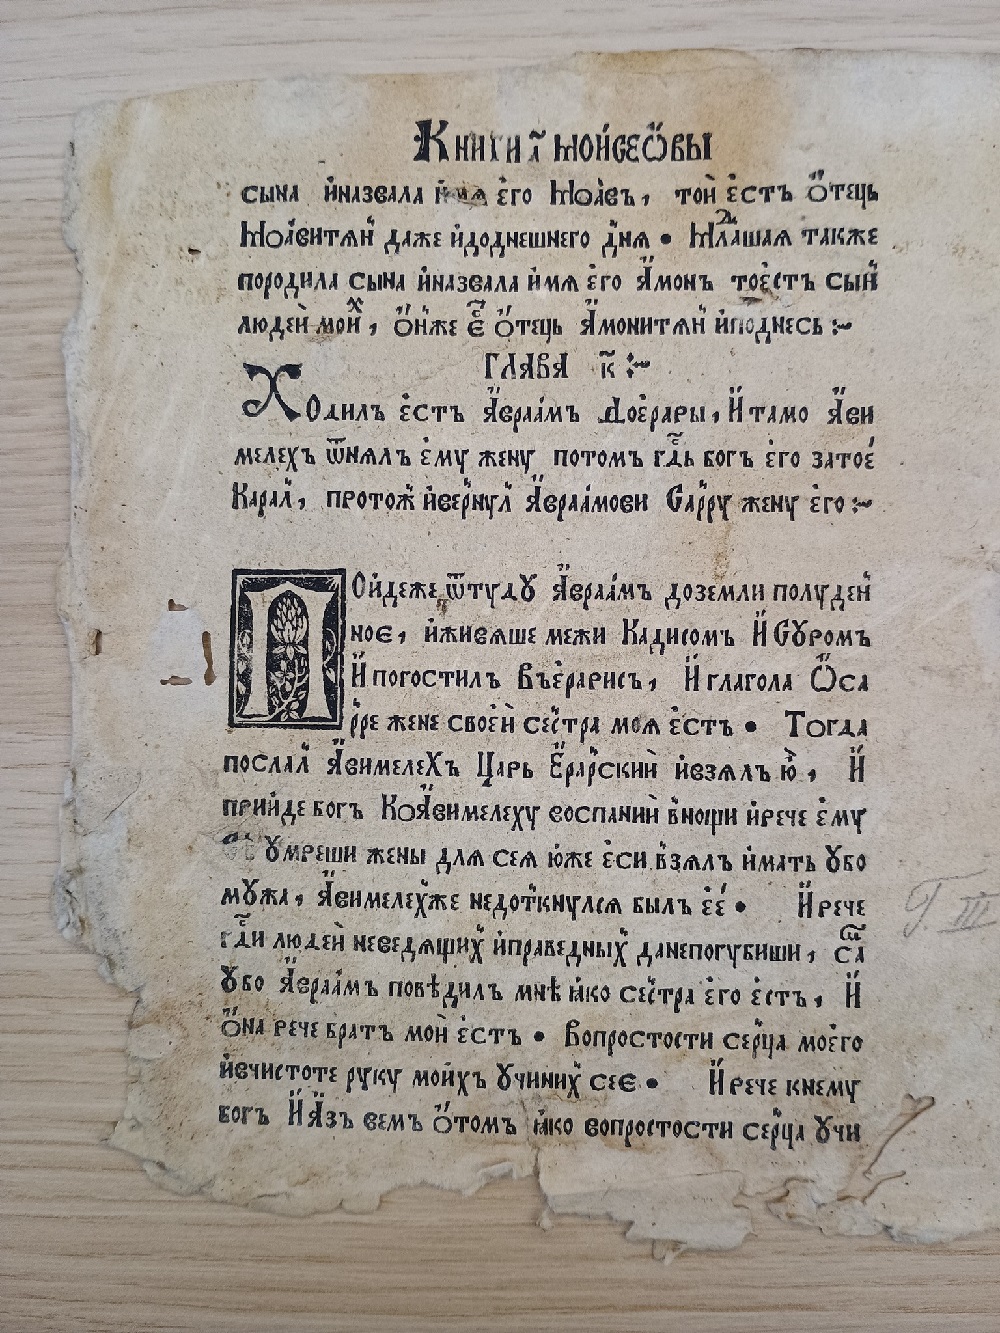 Книги а҃ мойсеѡ́вы
сына и҆назвала и҆мя е҆го Моа́въ, той е҆стъ ѻ҆тець
Моа́витя́н даже и҆доднешнего дн҃я • Млⷣашая также
породила сына и҆назвала и҆мя е҆го А҆монъ тое҆стъ сын
людей моиⷯ, ѻ҆ниже е҆сⷭ҇ ѻ҆тець А҆монитя́н и҆подднесь :~
ГЛАВА к҃ :~
Ходилъ е҆стъ А҆враа́мъ Дое҆рары, И҆ тамо А҆ви
мелехъ ѿнялъ е҆му жену потомъ гдⷭ҇ь богъ е҆го затое҆
Карал, протож и҆вернул А҆враа́мови Сарру жену е҆го :~
Пойдеже ѿтуду А҆враа́мъ доземли полуден
ноє, и҆живяше межи Кадисомъ И҆ Сꙋромъ
И҆ погостилъ Въе҆рарисъ, И҆ глагола Ѻ҆ Са
рре жене своей сестра моя е҆стъ • Тогда
послал А҆вимелехъ Царь Е҆рарский и҆взялъ ю҆, И҆
прийде богъ КоА҆вимелеху воспаний вноши и҆рече е҆му
ꙋмреши жены для сея ю҆же е҆си взялъ и҆мать ꙋбо
мꙋжа, А҆вимелехже недоткнулся былъ е҆е҆ • И҆ рече
гдⷭ҇и людей неведящих и҆праведных данепогубиши, саⷮ
ꙋбо А҆враа́мъ повѣдилъ мнѣ ꙗ҆ко сестра е҆го е҆стъ, И҆
ѻ҆на рече братъ мой е҆стъ • Вопростости серца моего
и҆вчистоте руку моихъ ꙋчиних сеє • И҆ рече кнему
богъ И҆ А҆зъ вемъ ѻ҆томъ ꙗ҆ко вопростости серца ꙋчи
Г. III